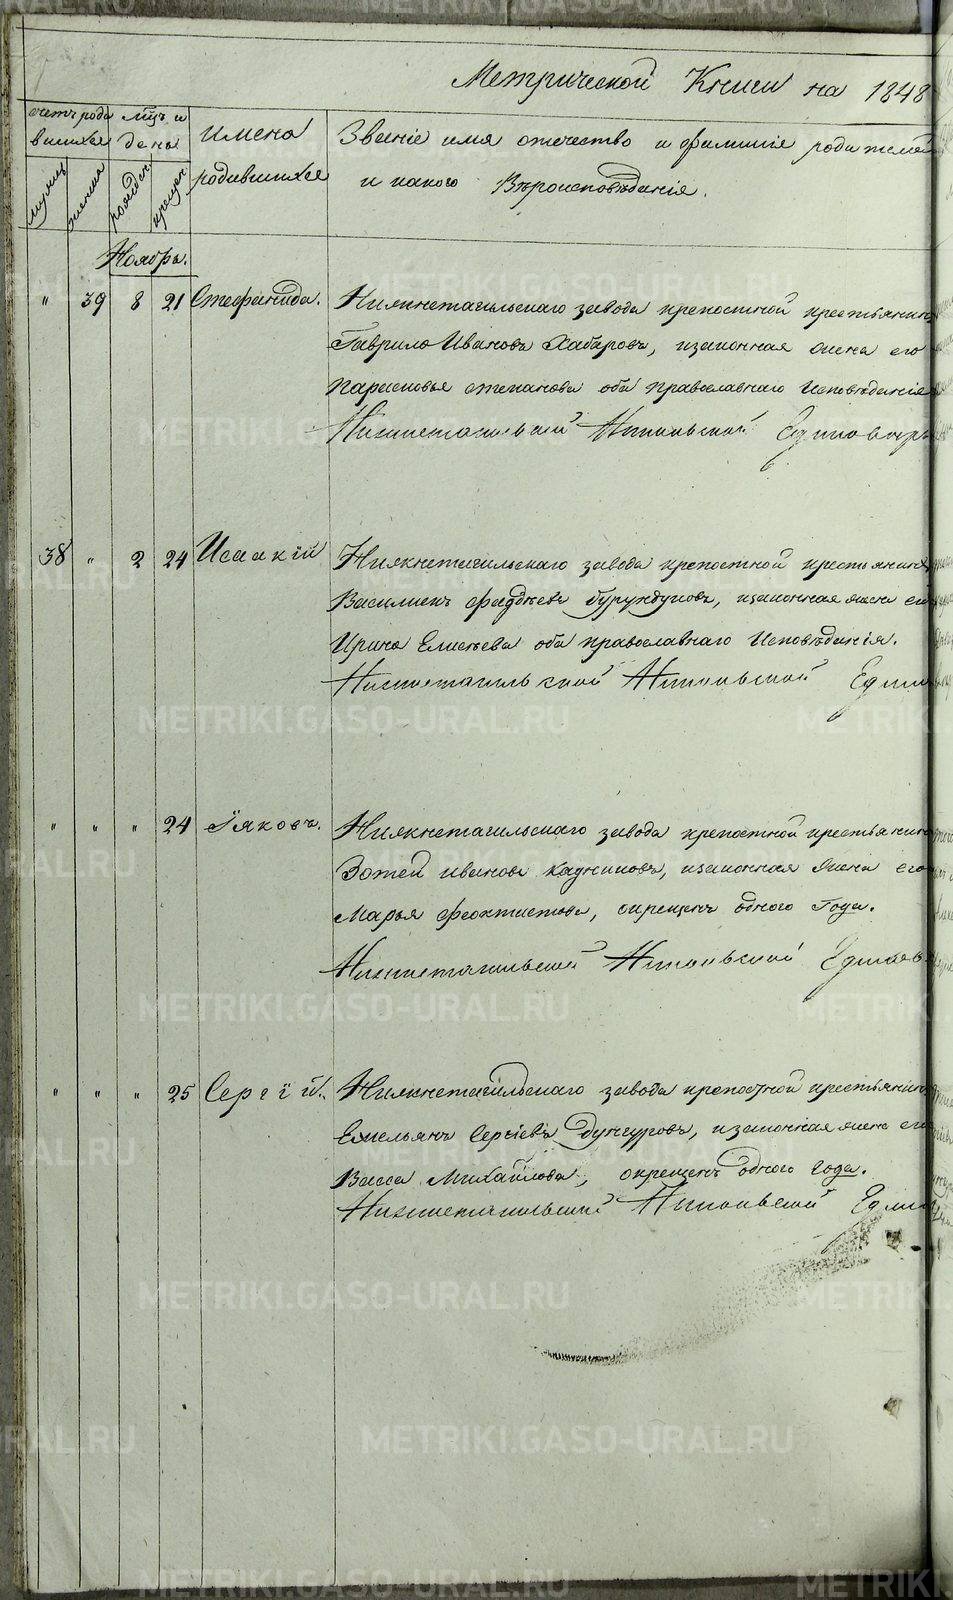 Метрической Книги на 1848
счетъ роди
вшихся
мцъ и
день
имена
родившихся
Званіе имя отечество и фамиліе родителей
и какого Вѣроисповѣданія.
мужска
женска
рожден
крещен
Ноябрь.
" 39 8 21 Стефанида. Нижнетагильскаго завода крепостной крестьянинъ
Гаврило Ивановъ Хабаровъ, изаконная жена его
Парасковья степанова оба православнаго Исповѣданія
Нижнетагильской Никольской Единовер
38 " 2 24 Исаакій Нижнетагильскаго завода крепостной крестьянинъ
Василисъ фадѣевъ бурундуковъ, изаконная жена его
Ирина Елисѣева оба православнаго Исповѣданія.
Нижнетагильской Никольской Един
" " " 24 Іяковъ. Нижнетагильскаго завода крепостной крестьянинъ
Зотей ивановъ кадниковъ, изаконная жена его
Марья феоктистова, окрещенъ одного года.
Нижнетагильской Никольской Единов
" " " 25 Сергій. Нижнетагильскаго завода крепостной крестьянинъ
Емельянъ Сергіевъ Дунгуровъ, изаконная жена его
Васса Михайлова, окрещенъ одного года.
Нижнетагильской Никольской Един
METRIKI.GASO-URAL.RU